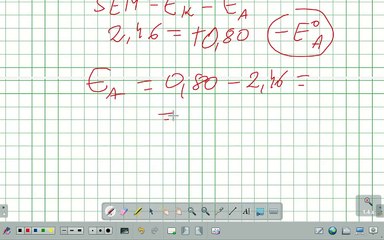 SEM - E_K - E_A
2,46 = +0,80 - E°_A
E_A = 0,80 - 2,46 =
=